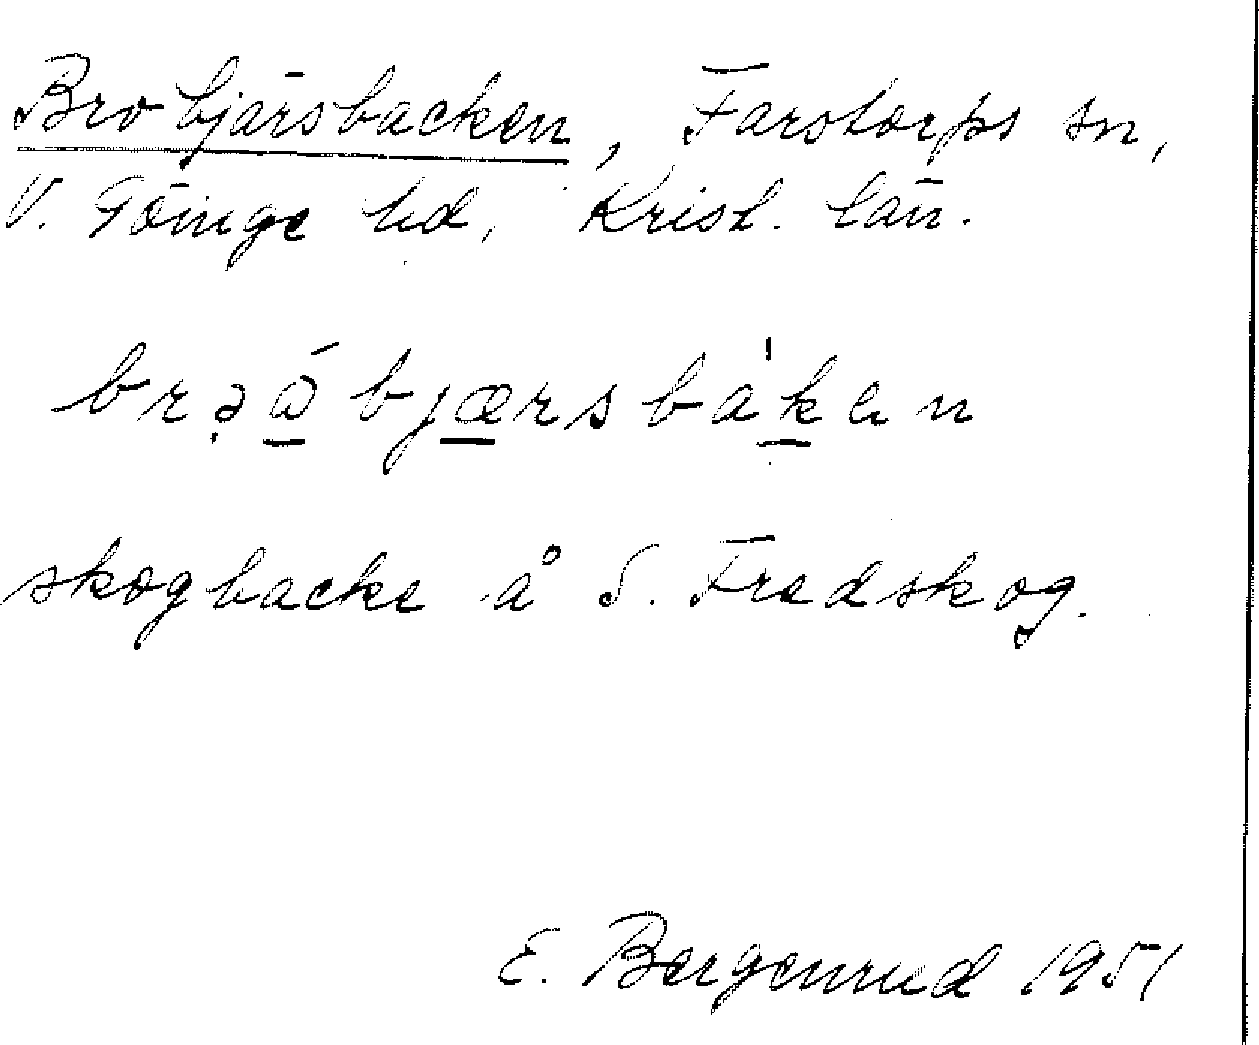 Brobjärsbacken, Farstorps sn,
V. Göinge hd, Krist. län.
brəåbjærsbak̀en
skogbacke å S. Fredskog.
E. Bergenrud 1951